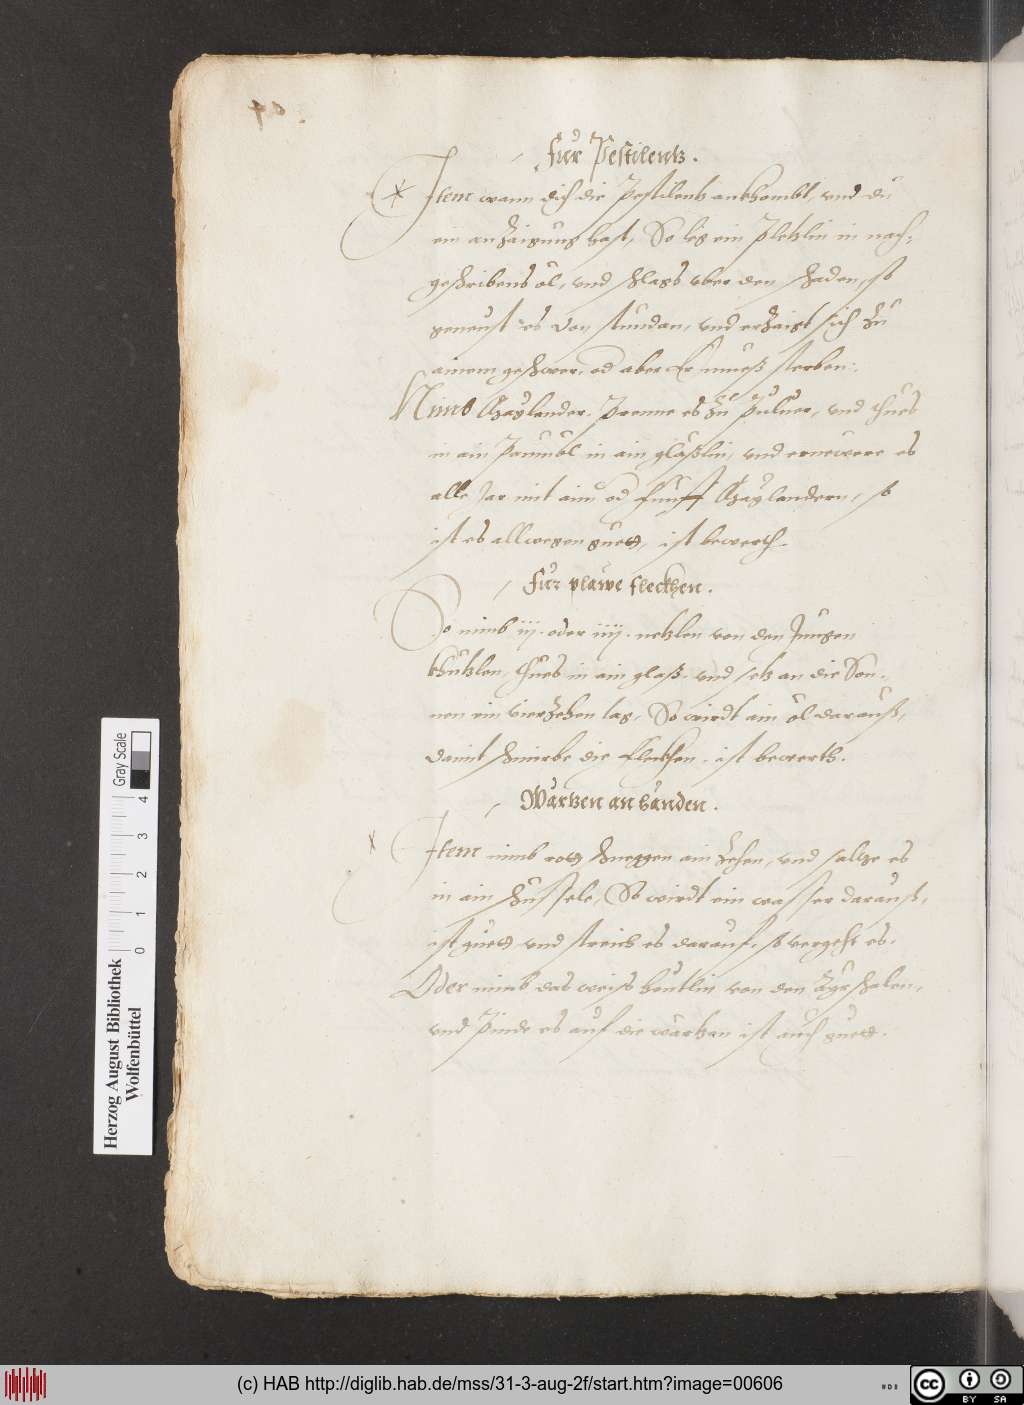 40.
Fur Pestilentz.
Item wann dich die Pestilentz ankhombt, vnd du
ein anzaigung hast, So leg ein Pletzlin in nach-
geschribens öl, vnd schlags vber den schaden, so
geneust es von stundan, vnd erzaigt sich zu
ainem geschwer, od aber Er mueß sterben.
Nimb Prenne es zu Puluer, vnd thues
in ain Paumöl in ain gläßlin, vnd ernewere es
alle Jar mit aim od funff so
ist es allwegen guet, ist bewerth.
Fur plawe fleckhen.
So nimb iij. oder iiij. von den Jungen
thues in ain glaß, vnd setz an die Son-
nen ein vierzehen tag, So wirdt ain öl darauß,
damit schmirbe die fleckhen, ist bewerth.
Wartzen an händen.
Item nimb rott schneggen ain zehen, vnd saltze es
in ain schüssele, So wirdt ein wasser darauß,
ist guet vnd streich es darauf, so vergeht es.
Oder nimb das weiß heutlin von den Ayrschalen,
vnd Pinde es auf die wartzen ist auch guet.
Herzog August Bibliothek
Wolfenbüttel
0 1 2 3 4
Gray Scale
(c) HAB http://diglib.hab.de/mss/31-3-aug-2f/start.htm?image=00606
WDB
cc BY SA